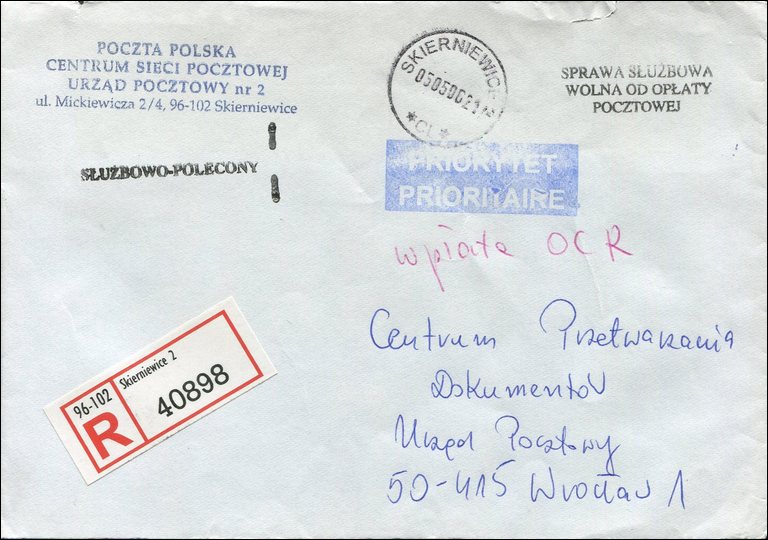 POCZTA POLSKA
CENTRUM SIECI POCZTOWEJ
URZĄD POCZTOWY nr 2
ul. Mickiewicza 2/4, 96-102 Skierniewice
SŁUŻBOWO-POLECONY
SKIERNIEWICE
*CL*
SPRAWA SŁUŻBOWA
WOLNA OD OPŁATY
POCZTOWEJ
PRIORYTET
PRIORITAIRE
wpłata OCR
96-102 Skierniewice 2
R 40898
Centrum Przetwarzania
Dokumentów
Urząd Pocztowy
50-415 Wrocław 1